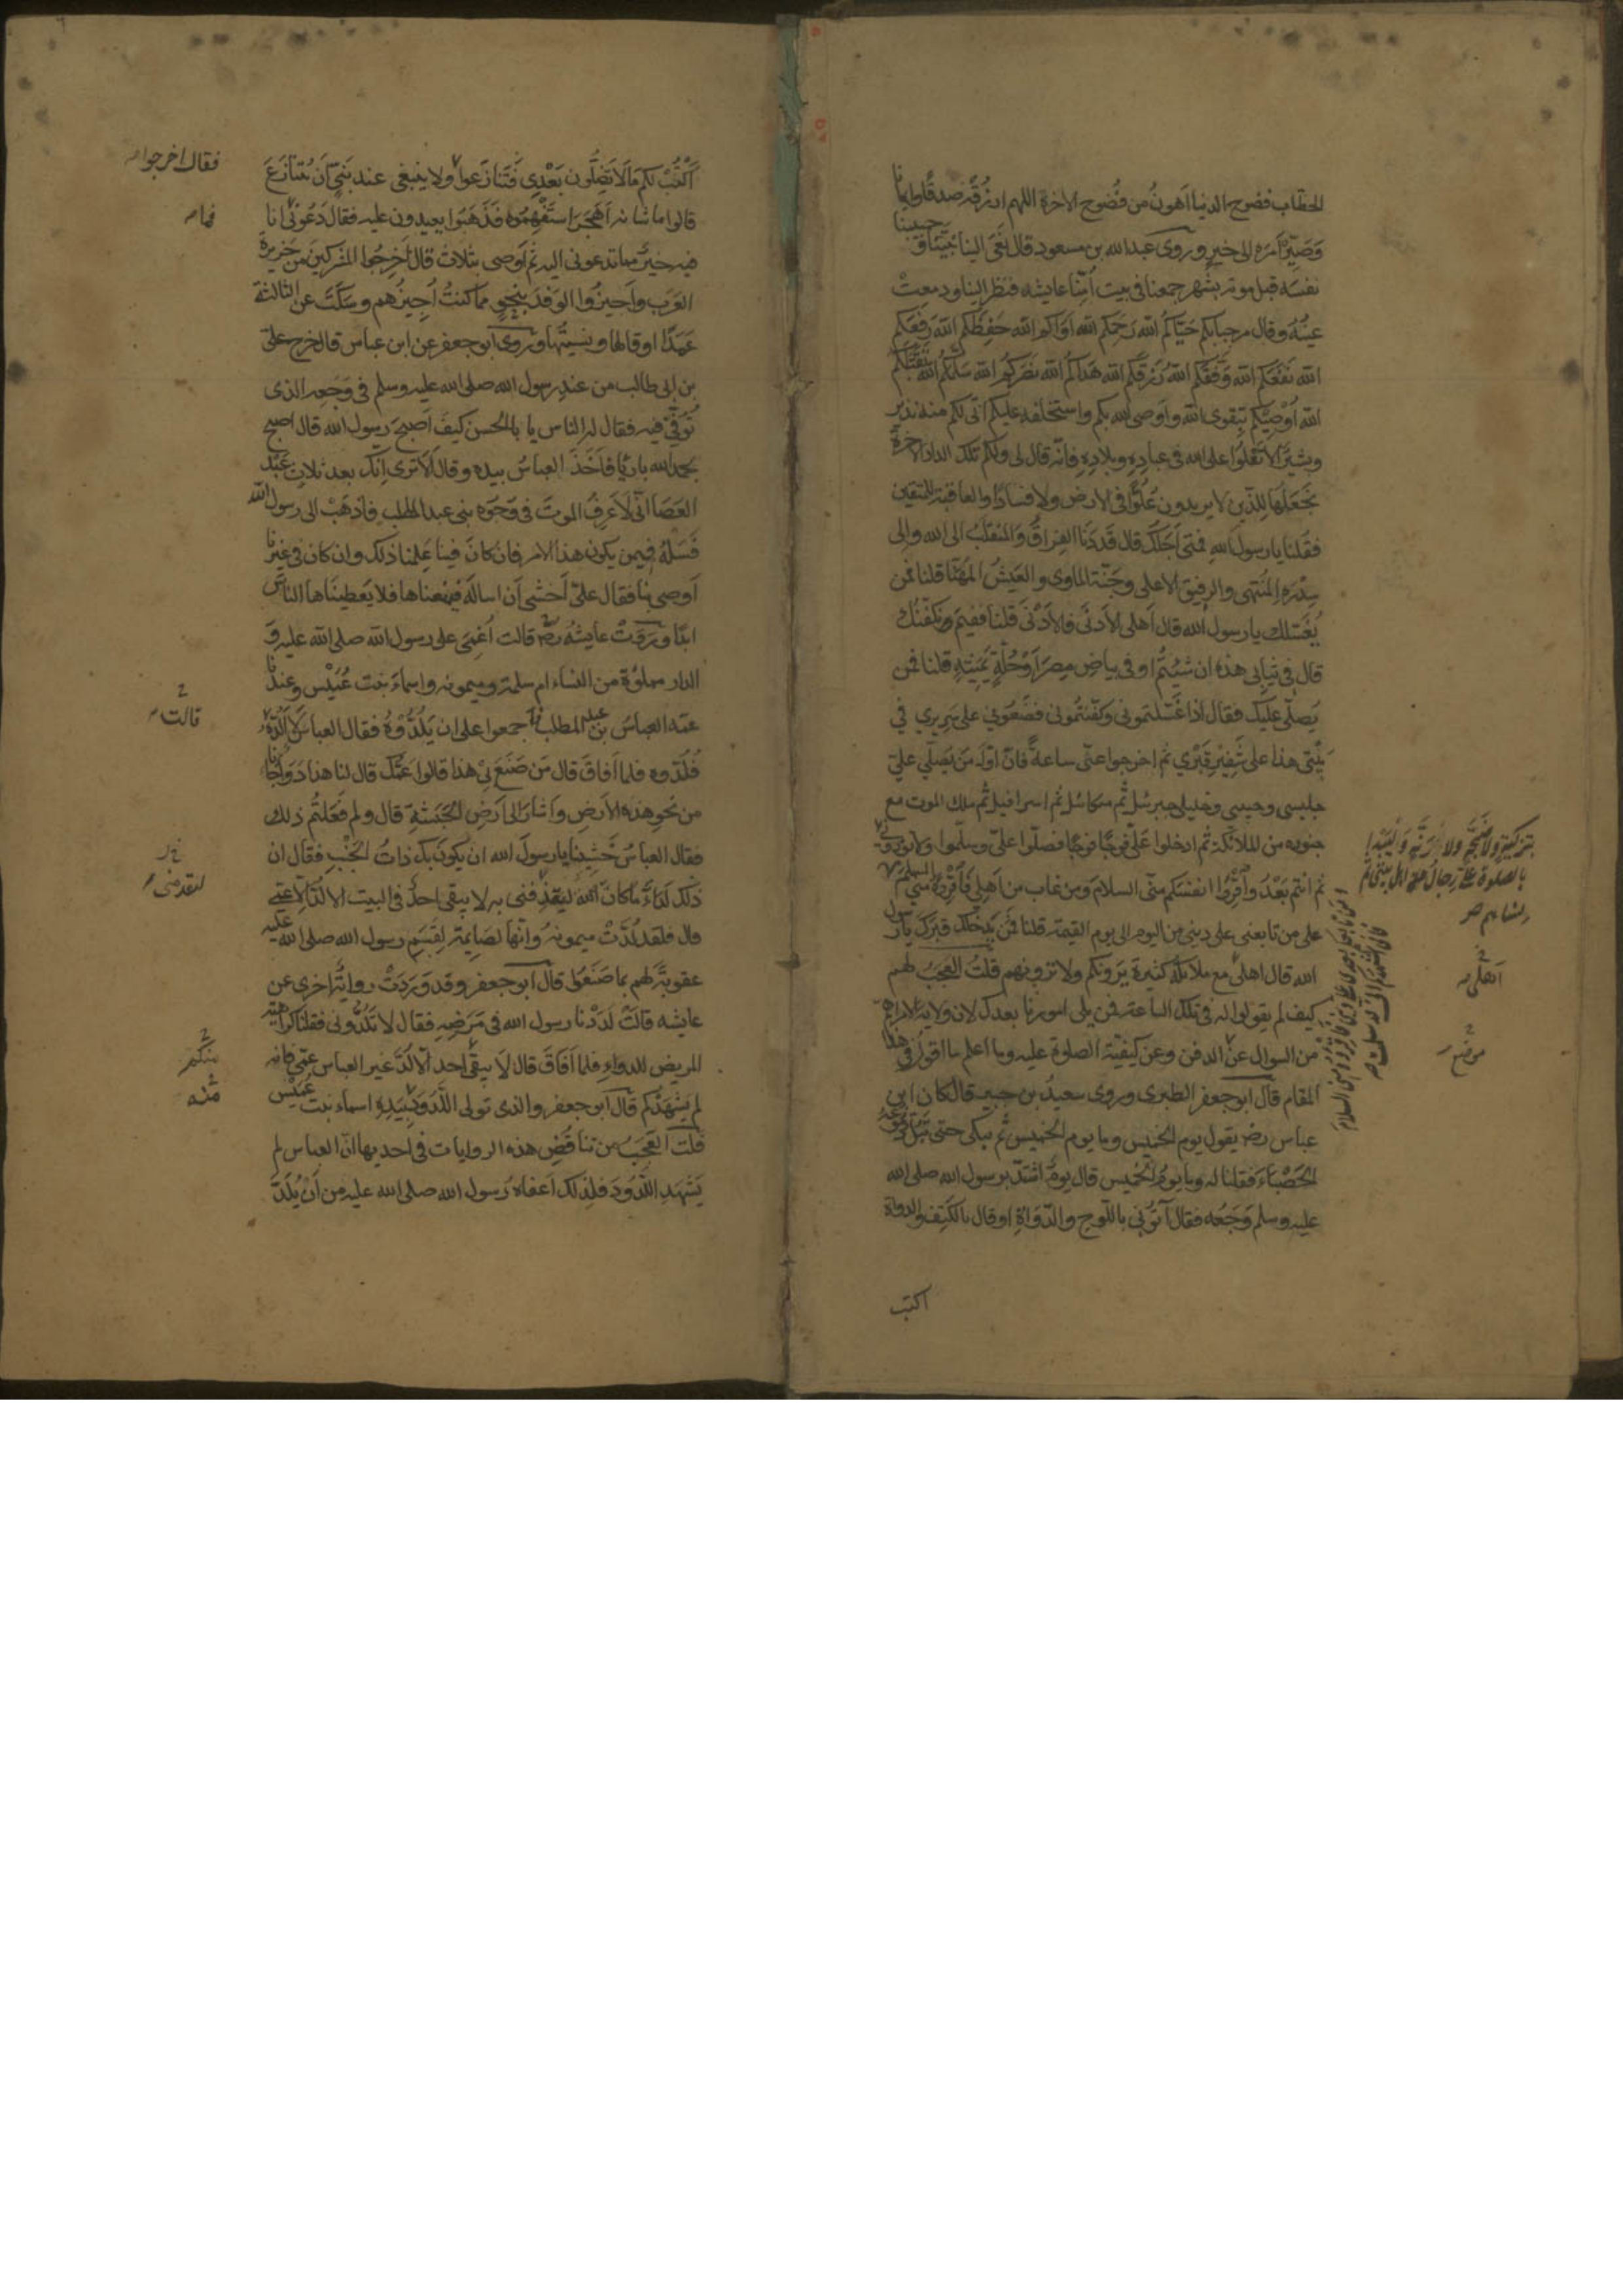 الخطاب فضوح الدنيا اهون من فضوح الاخرة اللهم ارزقه صدقا وايمانا
وصير امره الى خير وروى عبدالله بن مسعود قال نعى الينا نبينا وحبيبنا
نفسه قبل موته بشهر جمعنا في بيت امنا عايشه فنظر الينا ودمعت
عينه وقال مرحبا بكم حياكم الله رحمكم الله اواكم الله حفظكم الله رفعكم
الله نفعكم الله وفقكم الله رزقكم الله هداكم الله نصركم الله سلمكم الله تقبلكم
الله اوصيكم بتقوى الله واوصى الله بكم واستخلفه عليكم انى لكم منه نذير
وبشير الا تعلوا على الله في عباده وبلاده فانه قال لى ولكم تلك الدار الاخرة
نجعلها للذين لا يريدون علوا في الارض ولا فسادا والعاقبة للمتقين
فقلنا يا رسول الله فمتى اجلك قال قد دنا الفراق والمنقلب الى الله والى
سدرة المنتهى والرفيق الاعلى وجنة الماوى والعيش المهنا قلنا فمن
يغسلك يا رسول الله قال اهلى الادنى فالادنى قلنا ففيم نكفنك
قال في ثيابى هذه ان شيتم او في بياض مصر او حلة يمنية قلنا فمن
يصلى عليك فقال اذا غسلتمونى وكفنتمونى فضعونى على سريرى في
بيتى هذا على شفير قبرى ثم اخرجوا عنى ساعة فان اول من يصلى على
جليسى وحبيبى وخليلى جبرئيل ثم ميكائيل ثم اسرافيل ثم ملك الموت مع
جنوده من الملائكة ثم ادخلوا على فوجا فوجا فصلوا على وسلموا ولا توذونى
بتزكية ولا ضجة ولا رنة وليبدا
بالصلوة على رجال اهل بيتى ثم
نساؤهم صح
ثم انتم بعد واقرؤا انفسكم منى السلام ومن غاب من اهلى فاقرؤه منى السلام
على من تابعنى على دينى من اليوم الى يوم القيمة قلنا فمن يدخلك قبرك يا رسول
الله قال اهلى مع ملائكة كثيرة يرونكم ولا ترونهم قلت العجب لهم
اهلى
كيف لم يقولوا له في تلك الساعة فمن يلى امورنا بعدك لان ولاية الامر اهم
من السوال عن الدفن وعن كيفية الصلوة عليه وما اعلم ما اقول في هذا
موضع
المقام قال ابو جعفر الطبرى وروى سعيد بن جبير قال كان ابن
عباس رضه يقول يوم الخميس وما يوم الخميس ثم يبكى حتى تبل دموعه
الحصباء فقلنا له وما يوم الخميس قال يوم اشتد برسول الله صلى الله
عليه وسلم وجعه فقال آتونى باللوح والدواة او قال بالكتف والدواة
اكتب
اكتب لكم ما لا تضلون بعدى فتنازعوا ولا ينبغى عند نبى ان يتنازع
فقال اخرجوا
قالوا ما شانه اهجر استفهموه فذهبوا يعيدون عليه فقال دعونى انا
فما
فيه خير مما تدعونى اليه ثم اوصى بثلاث قال اخرجوا المشركين من جزيرة
العرب واجيزوا الوفد بنحو مما كنت اجيزهم وسكت عن الثالثة
عمدا او قالها ونسيتها وروى ابو جعفر عن ابن عباس قال خرج على
بن ابى طالب من عند رسول الله صلى الله عليه وسلم في وجعه الذى
توفى فيه فقال له الناس يا ابا الحسن كيف اصبح رسول الله قال اصبح
بحمد الله باريا فاخذ العباس بيده وقال الا ترى انك بعد ثلاث عبد
العصا انى لاعرف الموت في وجوه بنى عبد المطلب فاذهب الى رسول الله
فسله فيمن يكون هذا الامر فان كان فينا علمنا ذلك وان كان في غيرنا
اوصى بنا فقال على اخشى ان اساله فيمنعناها فلا يعطيناها الناس
ابدا وروت عايشه رضه قالت اغمى على رسول الله صلى الله عليه و
الدار مملوة من النساء ام سلمة وميمونه واسماء بنت عميس وعندنا
قالت
عمه العباس بن عبد المطلب فاجمعوا على ان يلدوه فقال العباس لا الده
فلدوه فلما افاق قال من صنع بى هذا قالوا عمك قال لنا هذا دواء جاءنا
من نحو هذه الارض واشار الى ارض الحبشة قال ولم فعلتم ذلك
فقال العباس خشينا يا رسول الله ان يكون بك ذات الجنب فقال ان
ذلك لداء ما كان الله ليقذفنى به لا يبقى احد في البيت الا لد الا عمى
قال فلقد لدت ميمونه وانها لصايمة لقسم رسول الله صلى الله عليه
عقوبة لهم بما صنعوا قال ابو جعفر وقد وردت رواية اخرى عن
عايشه قالت لددنا رسول الله في مرضه فقال لا تلدونى فقلنا كراهية
المريض للدواء فلما افاق قال لا يبقى احد الا لد غير العباس عمى فانه
منكم
لم يشهدكم قال ابو جعفر والذى تولى اللدود بيده اسماء بنت عميس
قلت العجب من تناقض هذه الروايات في احديها ان العباس لم
يشهد اللدود فلذلك اعفاه رسول الله صلى الله عليه من ان يلد